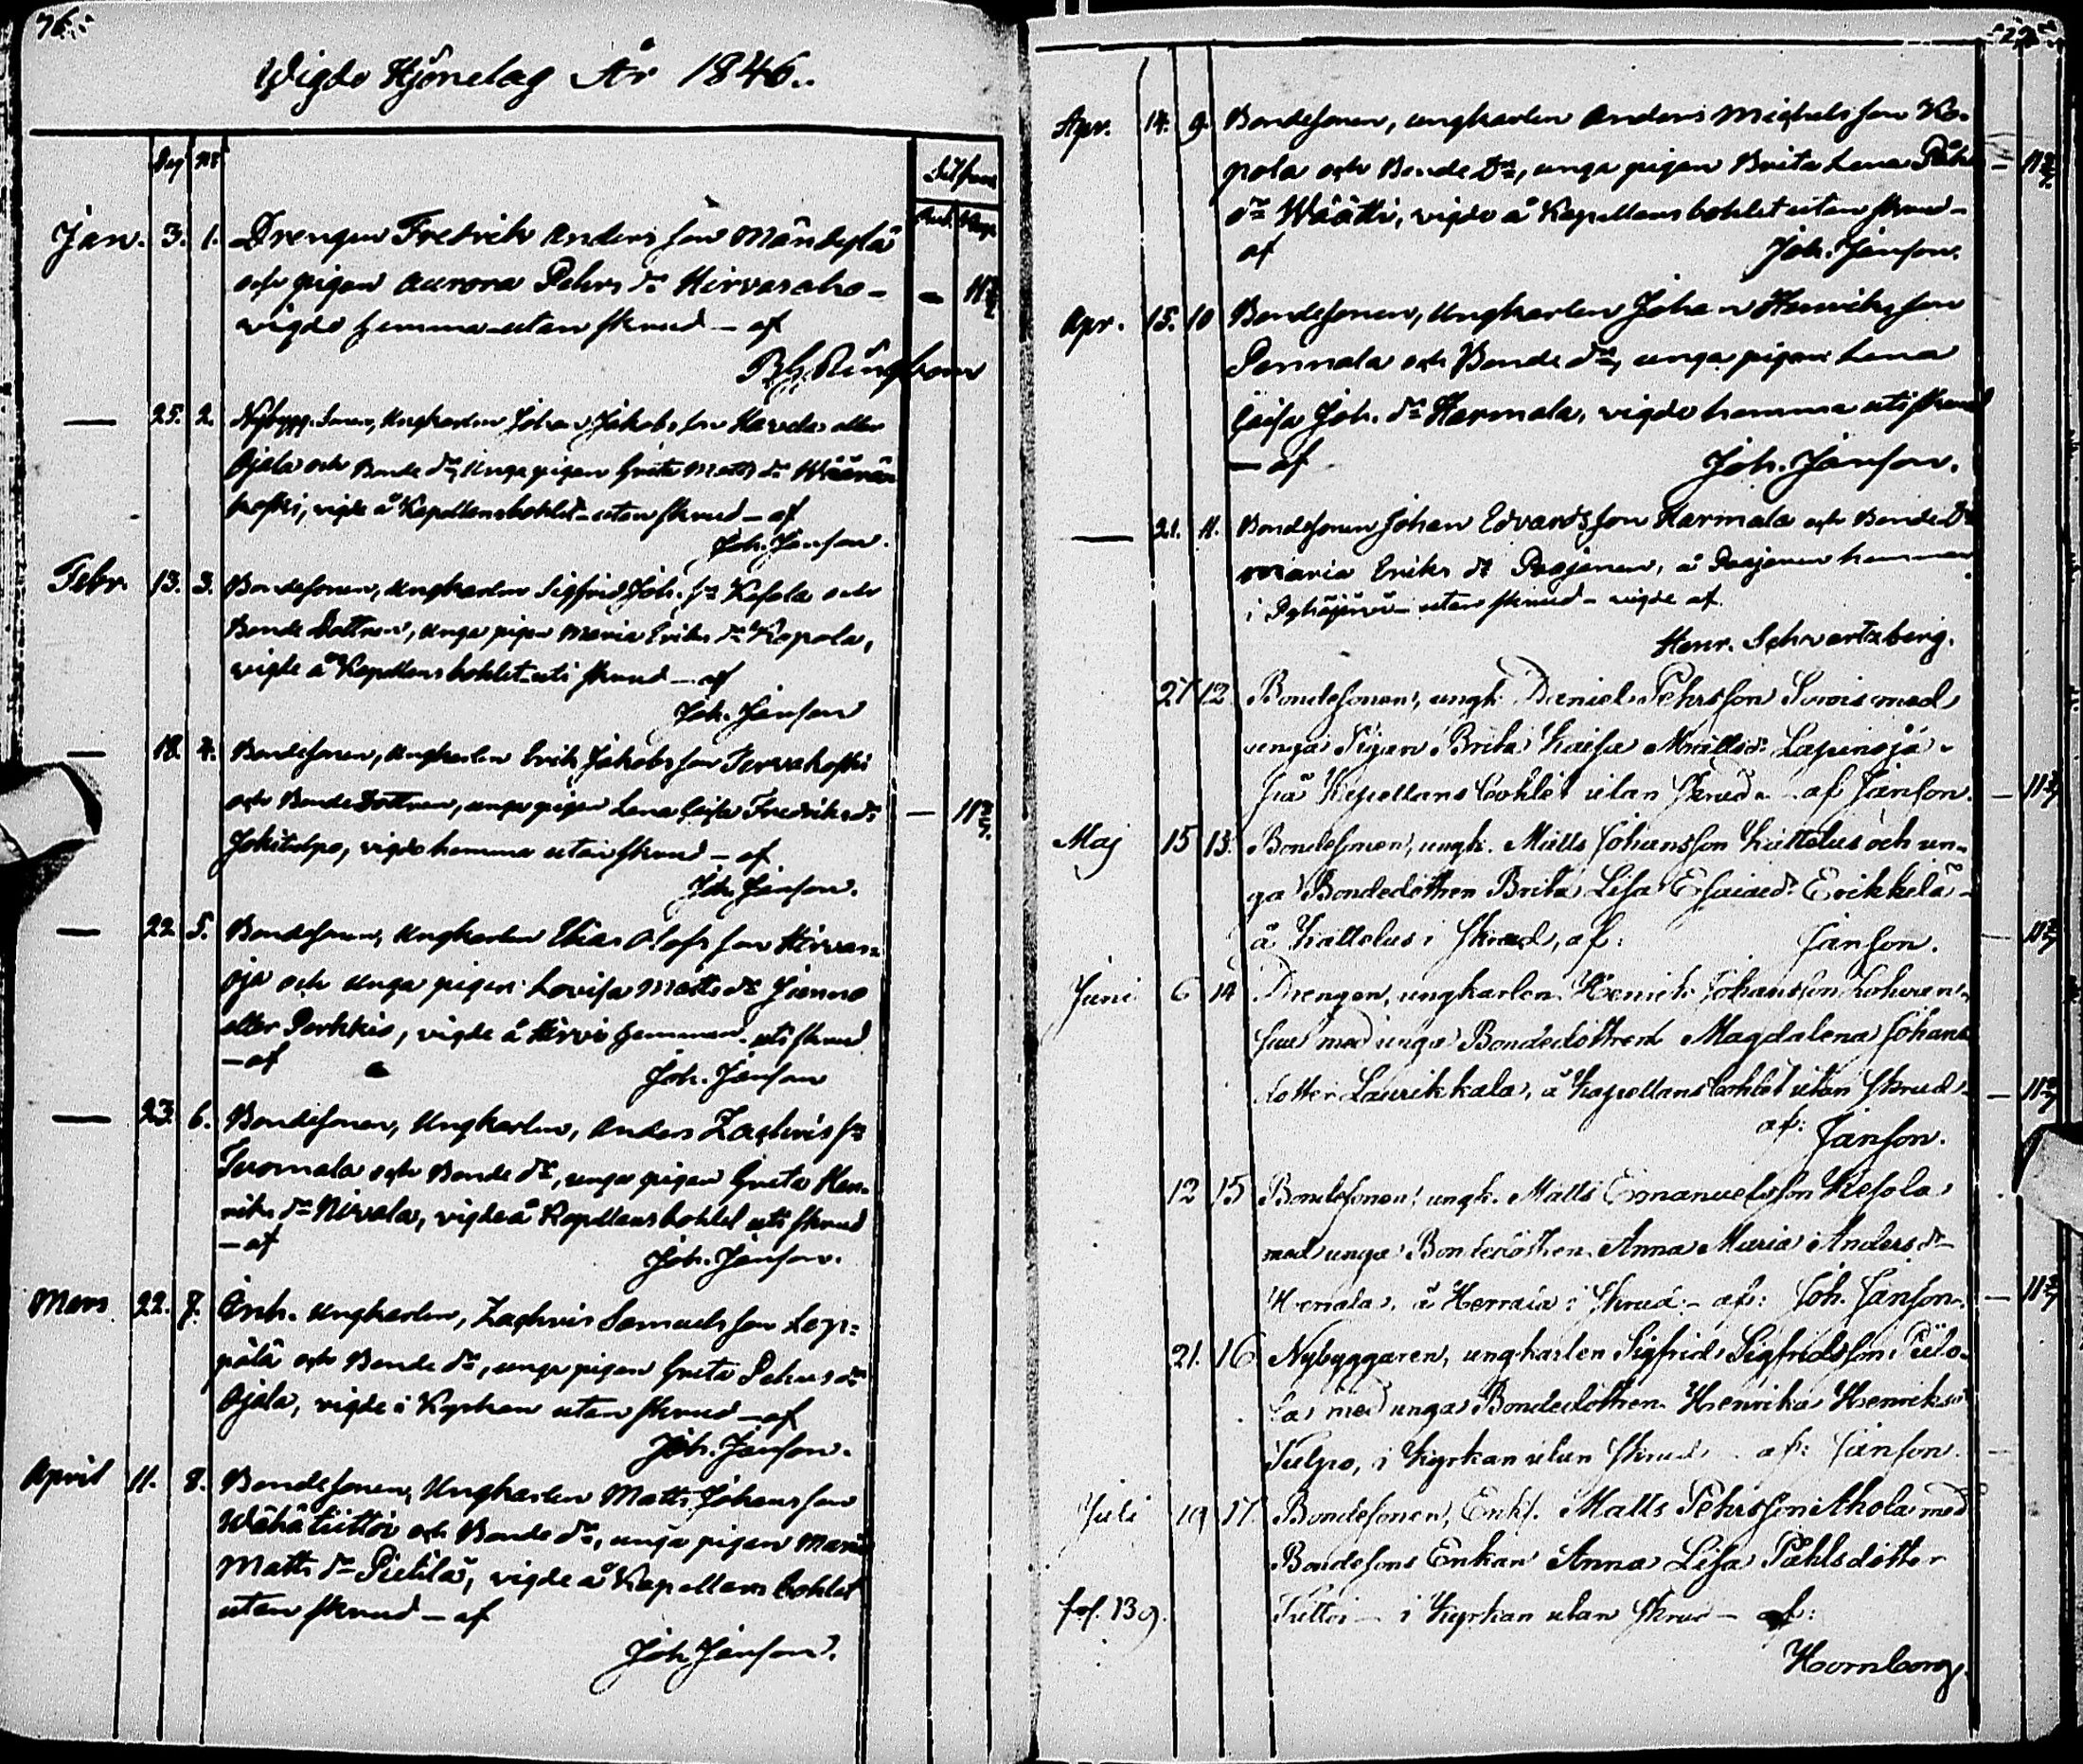 76.
Wigde Hjonelag År 1846.
Dag N:
Silfver
Rub. Kop.
Jan. 3. 1. Drengen Fredrik Andersson Mändylä
och pigan Aurora Pehrs dr Hirvasaho -
vigde hemma utan skrud - af
— 25. 2. Nybygg. Sonen, Ungkarlen Johan Jakobsson Haveda eller
Ojala och Bonde dr, Unga pigan Greta Matts dr Määrän
koski, vigde å Kapellansbohlet - utan skrud - af
Joh. Janson.
Febr. 13. 3. Bondesonen, Ungkarlen Sigfrid Joh. sn Kesola och
Bonde Dottren, Unga pigan Maria Eriks dr Kopola,
vigde å Kapellans bohlet - uti skrud - af
Joh. Janson
— 18. 4. Bondesonen, Ungkarlen Erik Jakobsson Tervakoski
och Bonde Dottren, unga pigan Lena Caisa Fredriks dr
Jokitulpo, vigde hemma utan skrud - af
Joh. Janson.
— 22. 5. Bondesonen, Ungkarlen Elias Olofsson Hirvas=
oja och unga pigan Lovisa Matts dr Junno
eller Perkkiö, vigde å Hirvi hemman - uti skrud
- af
Joh. Janson
— 23. 6. Bondesonen, Ungkarlen, Anders Zachris sn
Tuomala och Bonde dr, unga pigan Greta Hen=
riks dr Nivala, vigde å Kapellansbohlet uti skrud
- af
Joh. Janson.
Mars 22. 7. Enk. Ungkarlen, Zachris Samuelsson Lep=
pälä och Bonde dr, unga pigan Greta Pehrs dr
Ojala, vigde i Kyrkan utan skrud - af
Joh. Janson.
April 11. 8. Bondesonen, Ungkarlen Matts Johansson
Wähätiitto och Bonde dr, unga pigan Maria
Matts dr Pietilä, vigde å Kapellans bohlet
utan skrud - af
Joh Janson.
Apr. 14. 9. Bondesonen, ungkarlen Anders Michelsson Ko=
pola och Bonde Dr, unga pigan Brita Lena Påhls
dr Wäätti, vigde å Kapellansbohlet utan skrud -
af
Joh. Janson.
Apr. 15. 10 Bondesonen, Ungkarlen Johan Henriksson
Pennala och Bonde dr, unga pigan Lena
Caisa Joh. dr Harmala, vigde hemma uti skrud
- af
Joh. Janson.
— 21. 11. Bondesonen Johan Edvardsson Harmala och Bonde Dr
Maria Eriks dr Pasjanen, å Pasjanen hemman
i Pyhäjärvi - utan skrud - vigde af
Henr. Schvartzberg.
27 12 Bondesonen, ungk. Daniel Pehrsson Sorvis med
unga Pigan Brita Kaisa Mattsdr Lapinoja
på Kapellans bohlet utan skrud - af Janson.
Maj 15 13. Bondesonen, ungk. Matts Johansson Kattelus och un=
ga Bondedottren Brita Lisa Esaiædr Erikkelä -
å Kattelus i skrud, af: Janson.
Juni 6 14 Drengen, ungkarlen Henrik Johansson Lohvan=
suu med unga Bondedottren Magdalena Johans
dotter Laurikkala, å Kapellans bohlet utan skrud -
af: Janson.
12 15 Bondesonen, ungk. Matts Emanuelsson Kesola
med unga Bondedottren Anna Maria Anders dr
Herrala, å Herrala i skrud - af: Joh. Janson.
21. 16 Nybyggaren, ungkarlen Sigfrid Sigfridsson Pülo=
la med unga Bondedottren Henrika Henriksdr
Tulpo, i Kyrkan utan skrud - af: Janson.
Juli 19 17. Bondesonen, Enkl. Matts Pehrsson Ahola med
Bondesons Enkan Anna Lisa Påhlsdotter
fol. 139. Tiitto - i Kyrkan utan skrud - af:
Hornborg.